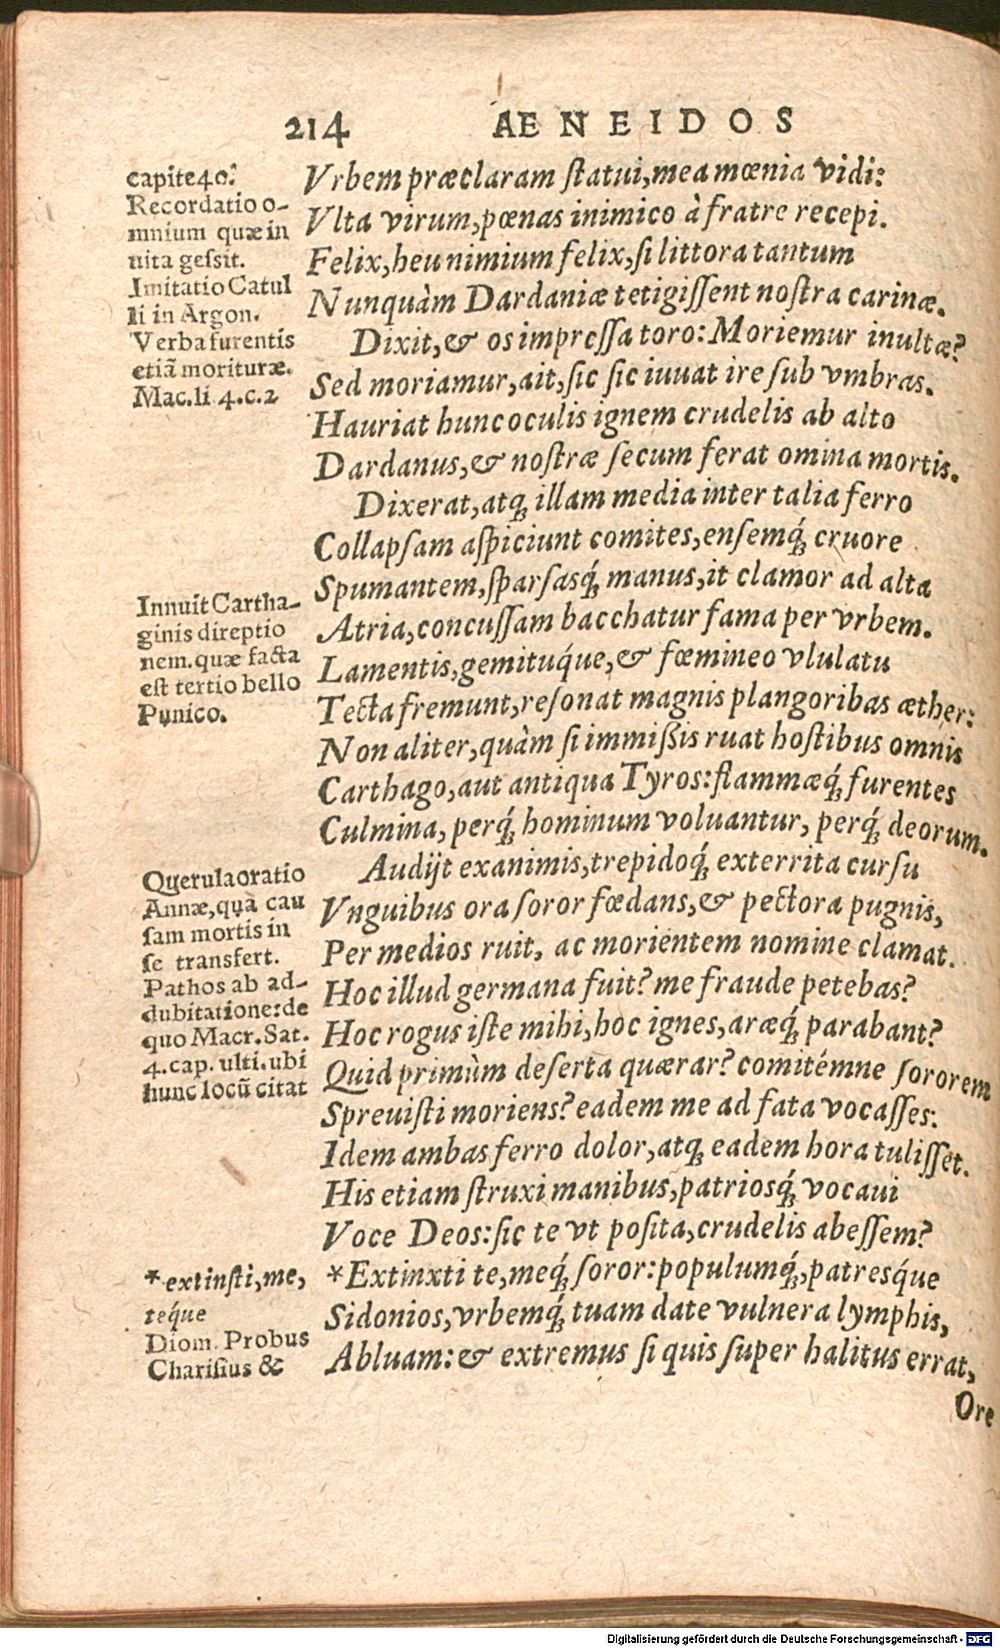 214 AENEIDOS
capite 40.
Recordatio o-
mnium quæ in
uita geſsit.
Imitatio Catul
li in Argon.
Verba furentis
etiã morituræ.
Mac. li 4. c. 2
Vrbem præclaram ſtatui, mea mœnia vidi:
Vlta virum, pœnas inimico à fratre recepi.
Felix, heu nimium felix, ſi littora tantum
Nunquàm Dardaniæ tetigiſſent noſtra carinæ.
Dixit, & os impreſſa toro: Moriemur inultæ?
Sed moriamur, ait, ſic ſic iuuat ire ſub vmbras.
Hauriat hunc oculis ignem crudelis ab alto
Dardanus, & noſtræ ſecum ferat omina mortis.
Dixerat, atq; illam media inter talia ferro
Collapſam aſpiciunt comites, enſemq́; cruore
Spumantem, ſparſasq́; manus, it clamor ad alta
Atria, concuſſam bacchatur fama per vrbem.
Lamentis, gemituq́ue, & fœmineo vlulatu
Tecta fremunt, reſonat magnis plangoribas æther:
Non aliter, quàm ſi immiſsis ruat hoſtibus omnis
Carthago, aut antiqua Tyros: flammæq́; furentes
Culmina, perq́; hominum voluantur, perq́; deorum.
Innuit Cartha-
ginis direptio
nem. quæ facta
eſt tertio bello
Punico.
Audijt exanimis, trepidoq́; exterrita curſu
Vnguibus ora ſoror fœdans, & pectora pugnis,
Per medios ruit, ac morientem nomine clamat.
Hoc illud germana fuit? me fraude petebas?
Hoc rogus iſte mihi, hoc ignes, aræq́; parabant?
Quid primùm deſerta quærar? comitémne ſororem
Spreuiſti moriens? eadem me ad fata vocaſſes:
Idem ambas ferro dolor, atq; eadem hora tuliſſet.
His etiam ſtruxi manibus, patriosq́; vocaui
Voce Deos: ſic te vt poſita, crudelis abeſſem?
*Extinxti te, meq́; ſoror: populumq́;, patresq́ue
Sidonios, vrbemq́; tuam date vulnera lymphis,
Abluam: & extremus ſi quis ſuper halitus errat,
Querula oratio
Annæ, quã cau
ſam mortis in
ſe transfert.
Pathos ab ad-
dubitatione: de
quo Macr. Sat.
4. cap. ulti. ubi
hunc locũ citat
* extinſti, me,
teq́ue
Diom. Probus
Chariſius &
Ore
Digitalisierung gefördert durch die Deutsche Forschungsgemeinschaft - DFG